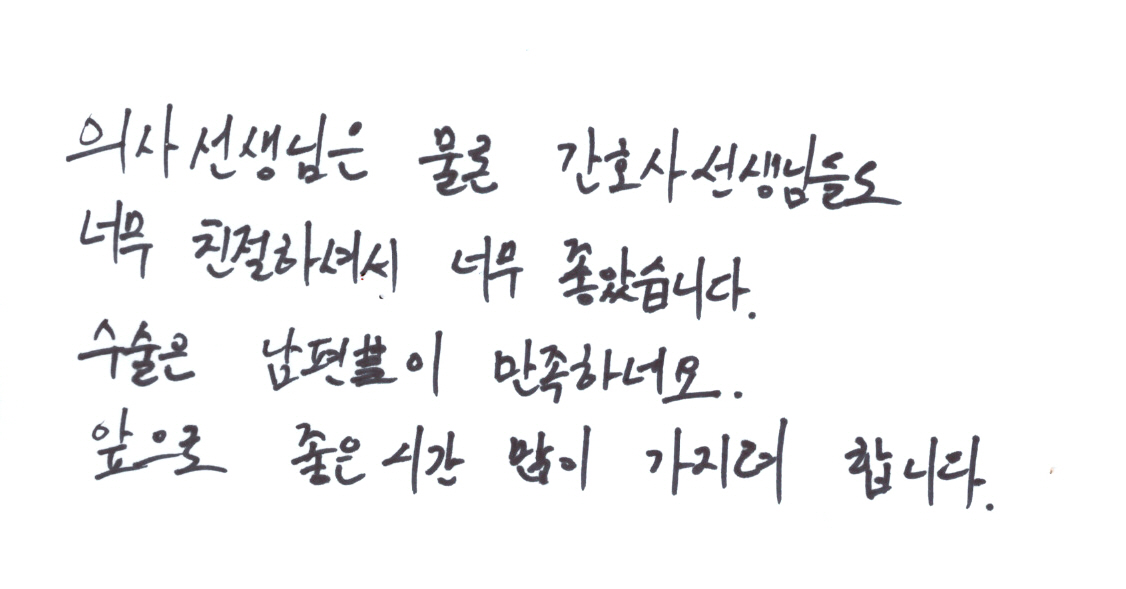 의사선생님은 물론 간호사선생님들도
너무 친절하셔서 너무 좋았습니다.
수술은 남편이 만족하네요.
앞으로 좋은시간 많이 가지려 합니다.